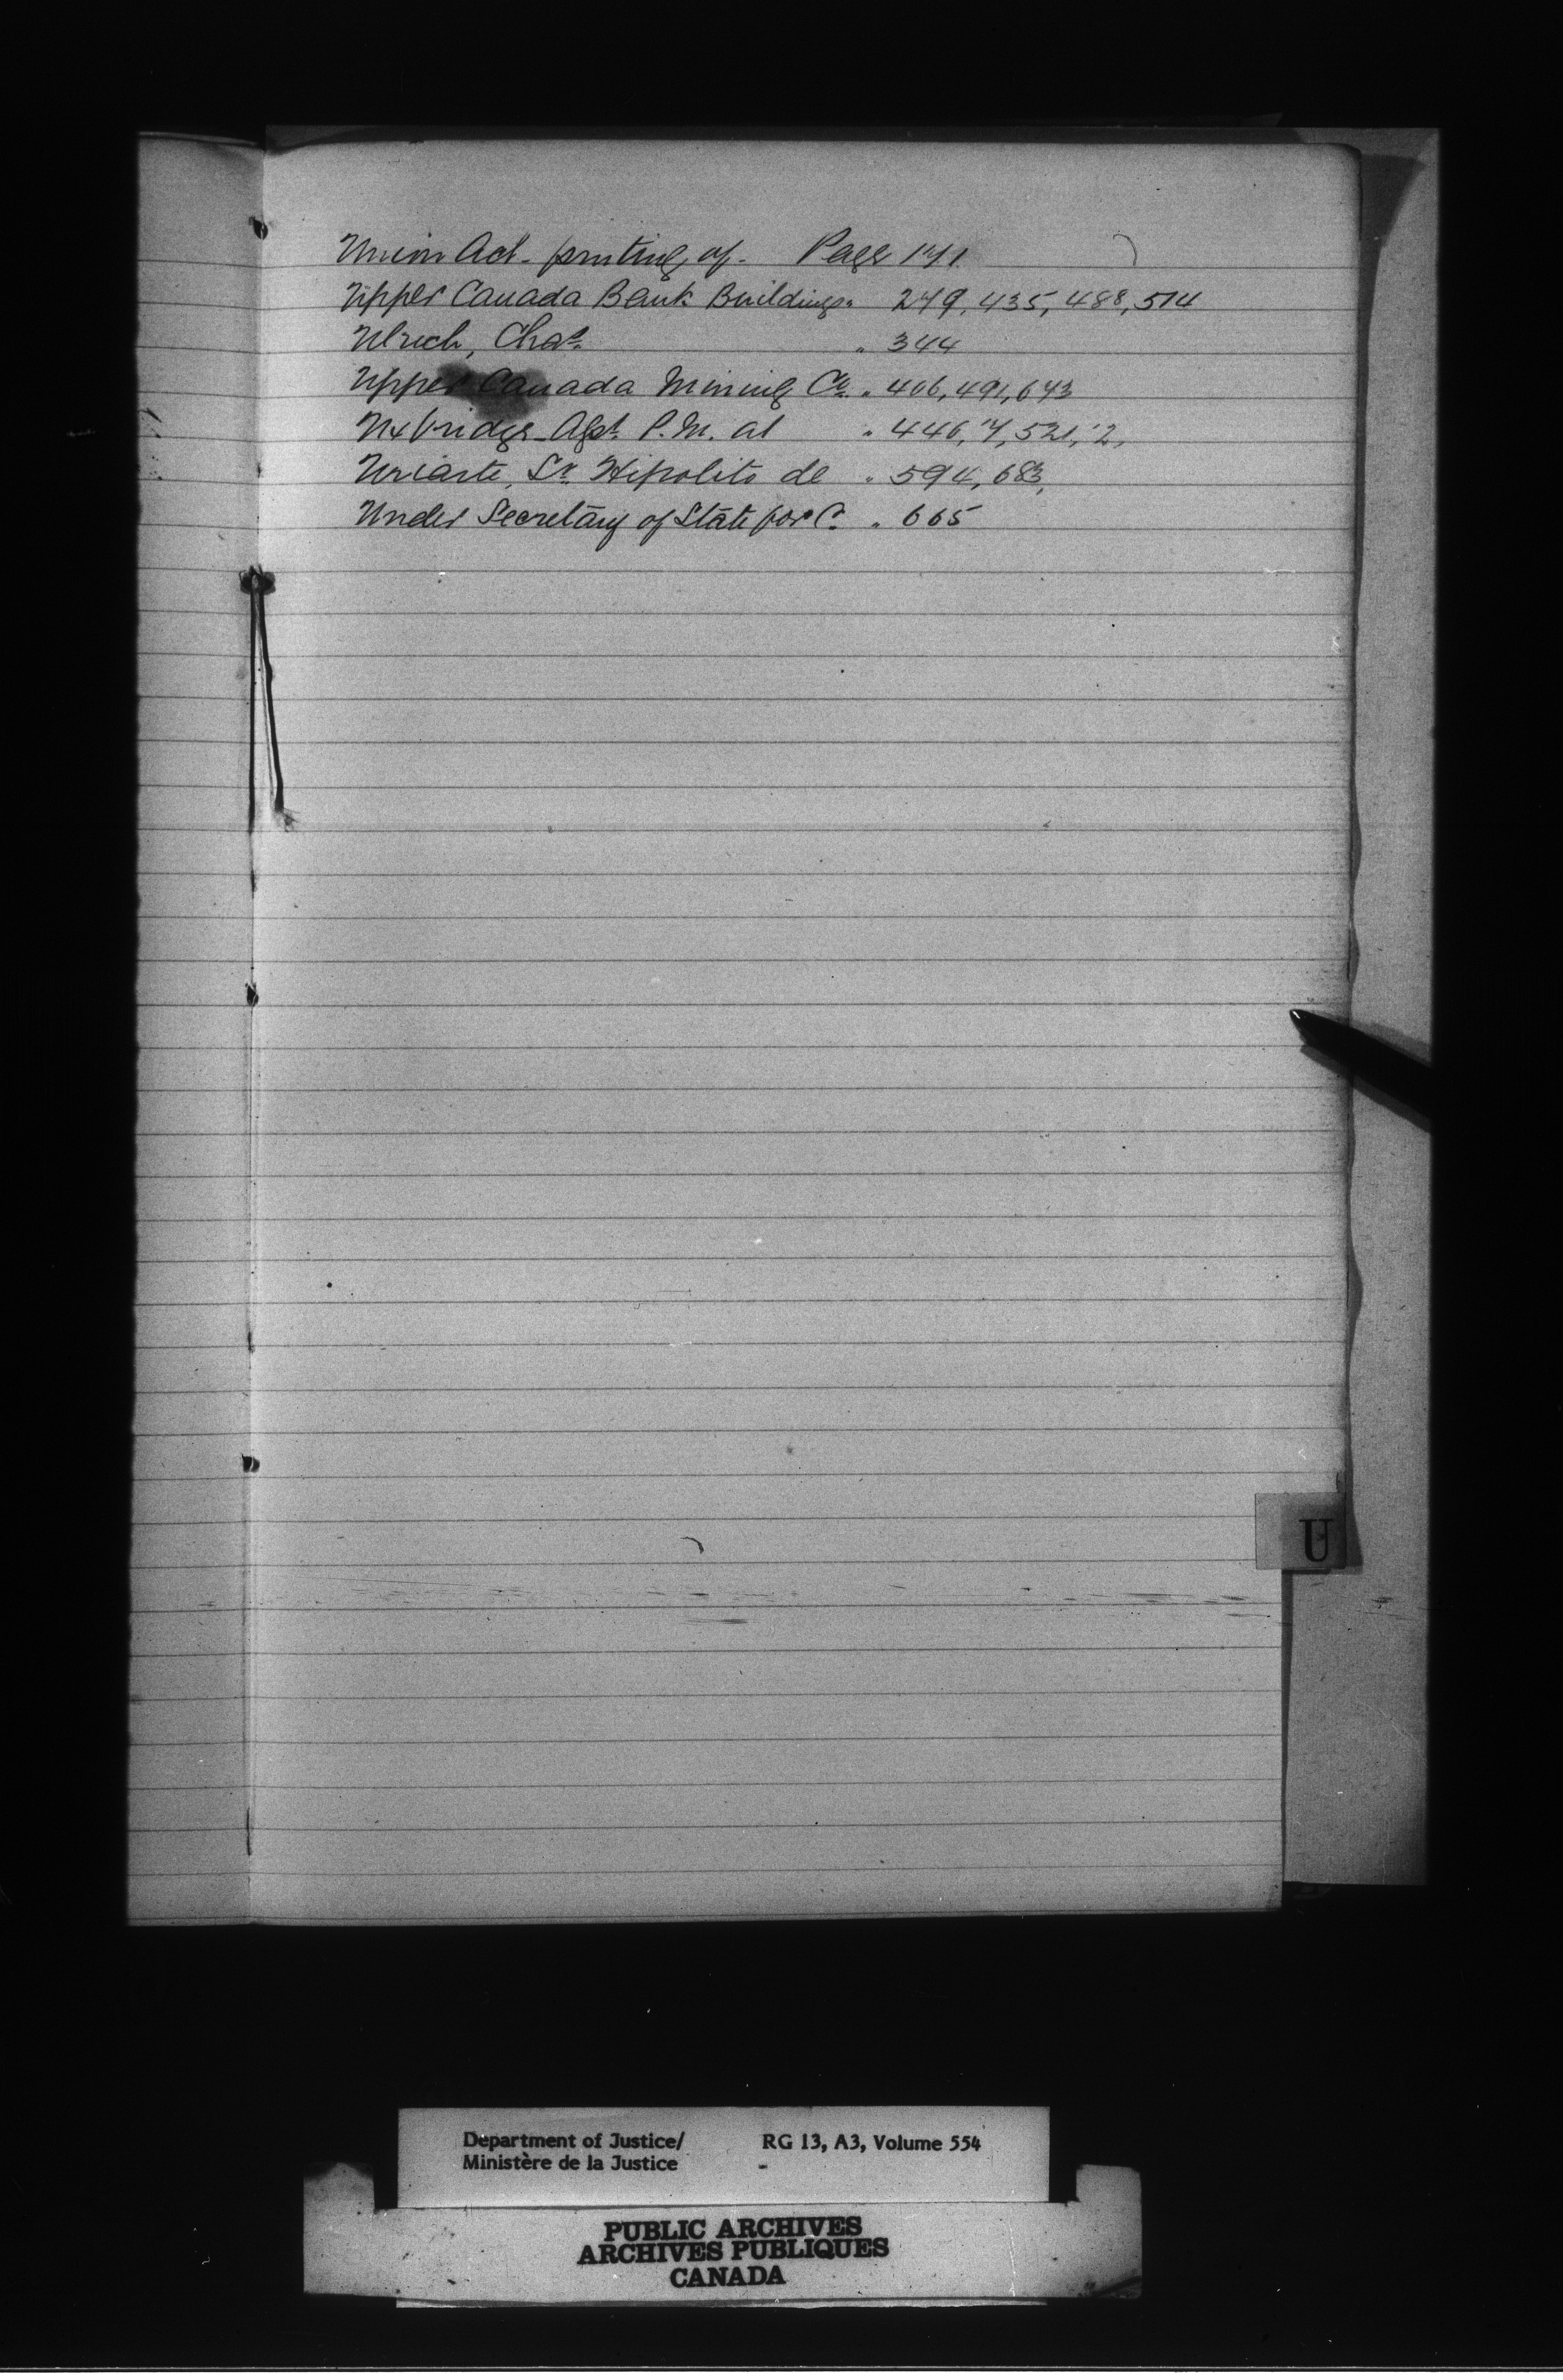 Union Act - printing of - Page 171.
Upper Canada Bank Buildings " 279, 435, 488, 514
Ulrich, Chas. " 344
Upper Canada Mining Co. " 406, 491, 673
Uxbridge - Agst. P.M. at " 446, '7, 521, '2,
Uriarte, Sr. Hipolito de " 594, 683,
Under Secretary of State for C. " 665
U
Department of Justice/ RG 13, A3, Volume 554
Ministère de la Justice -
PUBLIC ARCHIVES
ARCHIVES PUBLIQUES
CANADA